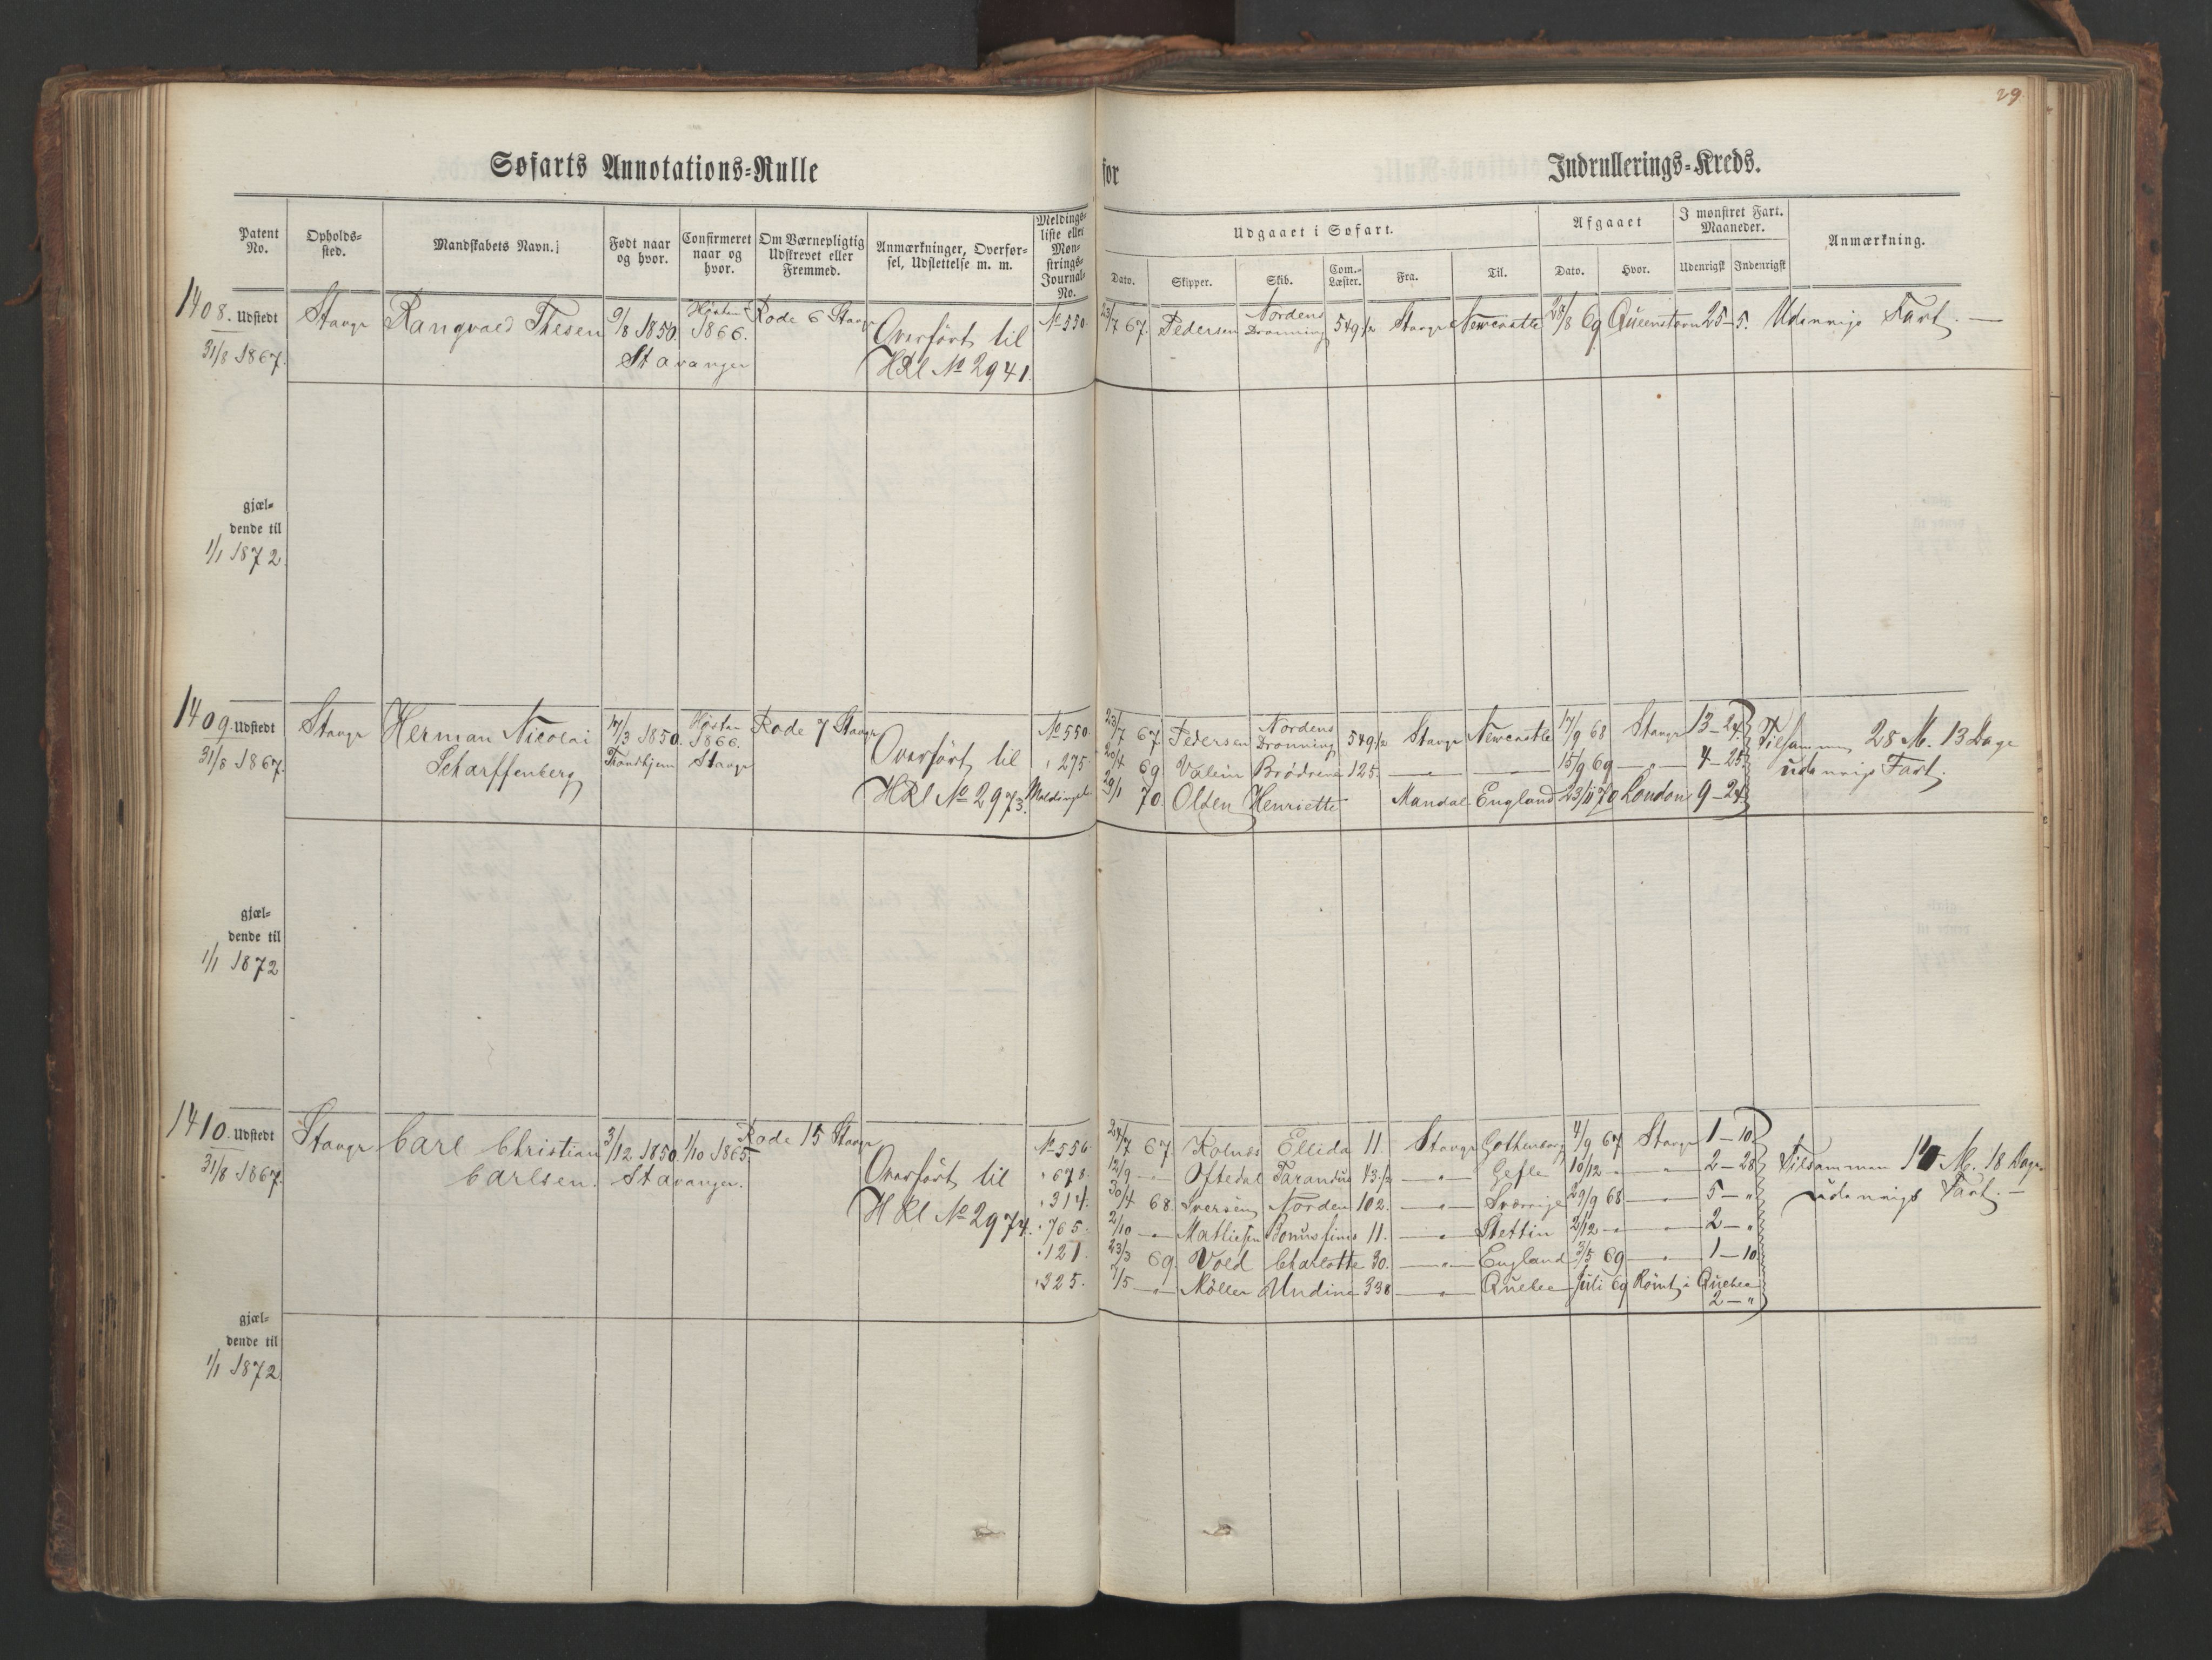 29.
Søfarts Annotations-Rulle for Indrullerings-Kreds.
Patent No. Opholds-sted. Mandskabets Navn. Født naar og hvor. Confirmeret naar og hvor. Om Værnepligtig Udskrevet eller Fremmed. Anmærkninger, Overførsel, Udslettelse m. m. Meldings-liste eller Mønstrings-Journal-No.
Udgaaet i Søfart. Afgaaet I mønstret Fart. Maaneder. Anmærkning.
Dato. Skipper. Skib. Com.-Læster. Fra. Til. Dato. Hvor. Udenrigsk Indenrigsk
1408. Udstedt Stavgr Rangvald Thesen 9/8 1850. Høsten 1866. Rode 6 Stavgr Overført til No 550. 23/7 67. Pedersen Nordens Dronning 549 1/2 Stavgr Newcastle 28/8 69 Queenstown 25-5. Udenrigs Fart. —
31/8 1867. Stavanger HRl No 2941.
gjæl-
dende til
1/1 1872
1409. Udstedt Stavgr Herman Nicolai 17/3 1850. Høsten 1866. Rode 7 Stavgr Overført til No 550 23/7 67. Pedersen Nordens Dronning 549 1/2 Stavgr Newcastle 17/9 68 Stavgr 13-24. Tilsammen 28 M. 13 Dage
31/8 1867. Scharffenberg Trondhjem Stavgr " 275 20/4 69 Valein Brødrene 125. — " — 15/9 69 — " — 4-25. udenrigs Fart.
HRl No 2973. 29/1 70. Olsen Henriette Mandal England 23/11 70 London 9-24.
gjæl-
dende til
1/1 1872
1410. Udstedt Stavgr Carl Christian 3/12 1850. 1/10 1865. Rode 15 Stavgr No 556 24/7 67. Kolnes Ellida 11. Stavgr Gothenborg 4/9 67 Stavgr 1-10.
31/8 1867. Carlsen. Stavanger. Overført til " 678. 12/9 — " Oftedal Tarandus 43 1/2 — " — Gefle 10/12 — " " 2-28 Tilsammen M. 18 Dage
HRl No 2974. " 314. 30/4 68 Iversen Norden 102. — " — Sverrige 29/9 68 — " — 5-" udenrigs Fart. —
" 765. 2/10 — " Mathiesen 11. — " — Stettin 2/12 — " — 2-"
" 121. 23/3 69. Vold Charlotte 30. — " — England 3/5 69 — " — 1-10
" 325. 7/5 — " Møller Undine 338 — " — Quebec Juli 69 Rømt i Quebec
2-"
gjæl-
dende til
1/1 1872